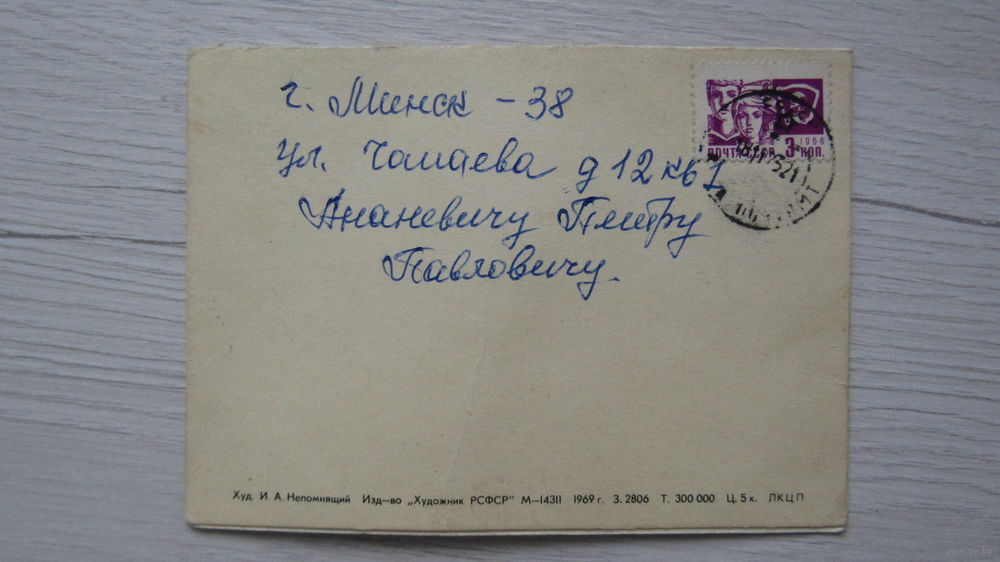 г. Минск - 38
ул. Чапаева д 12 кв 1
Ананевичу Петру
Павловичу.
ПОЧТА СССР 3 КОП.
1966
Худ. И. А. Непомнящий Изд-во „Художник РСФСР" М-14311 1969 г. З. 2806 Т. 300 000 Ц. 5 к. ЛКЦП